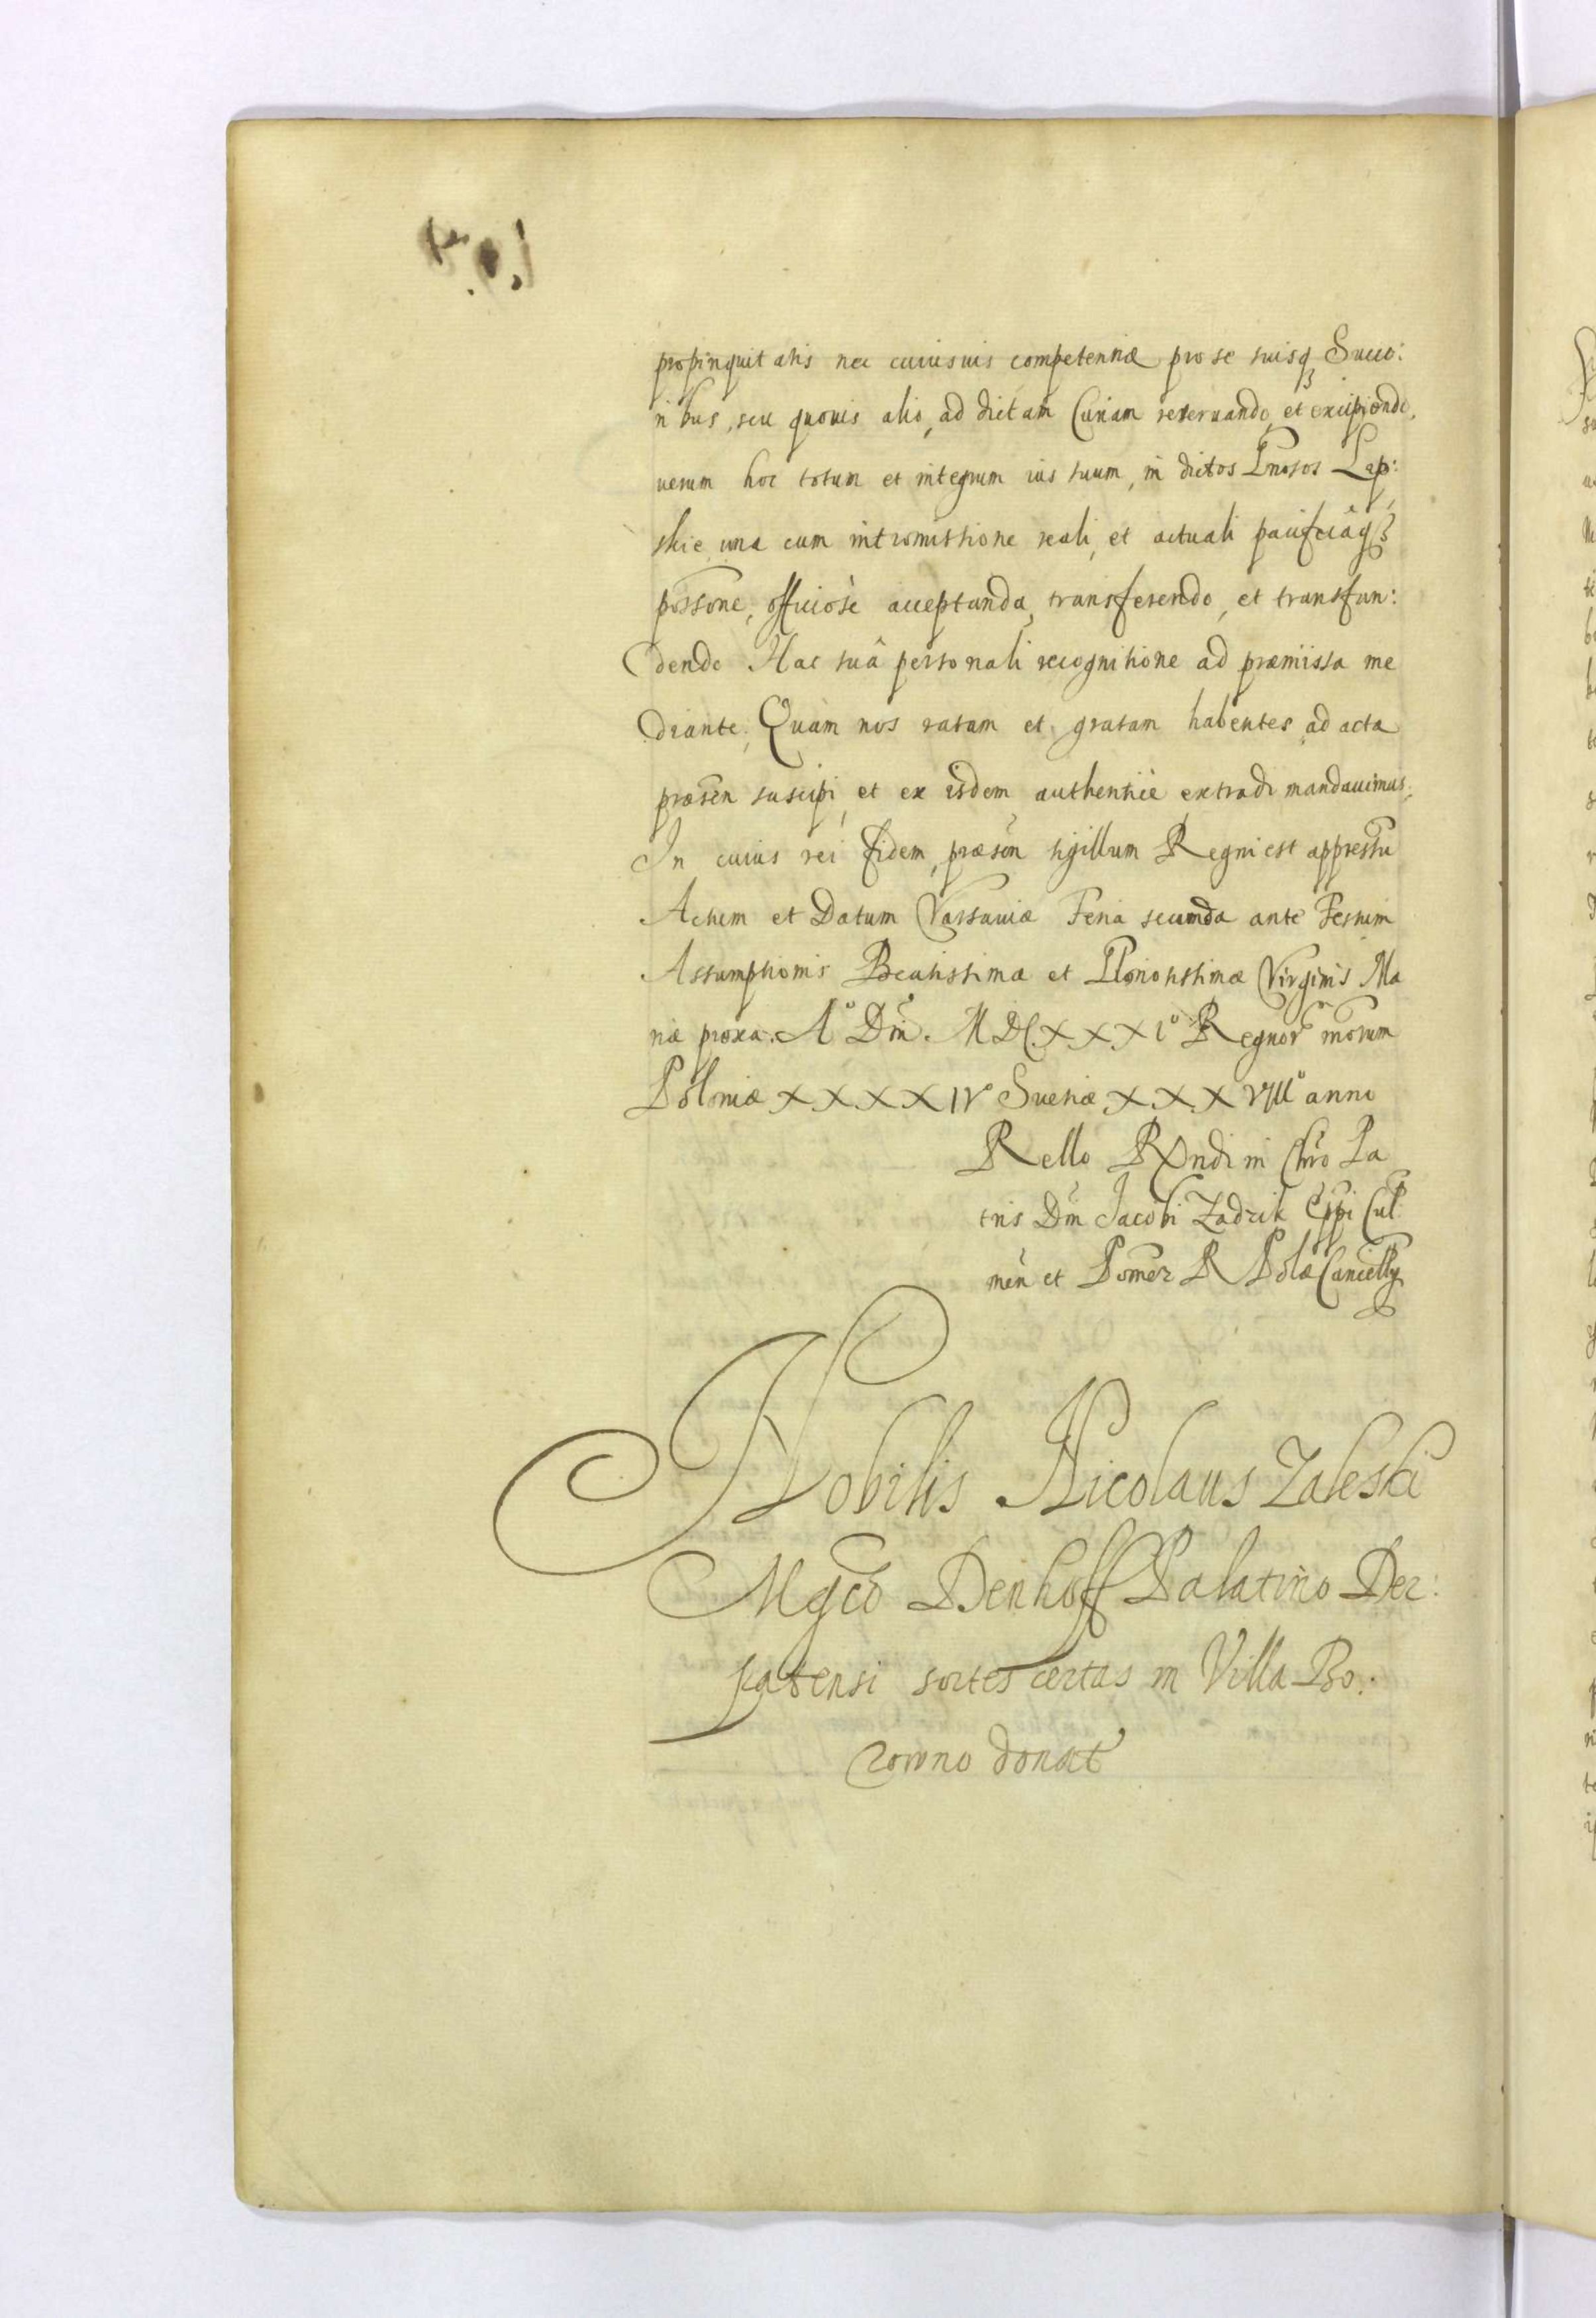 propinquitatis nec cuiusuis competentiæ pro se suisq3 Succo:
ribus, seu quouis alio, ad dictam Curiam reseruando, et excipiendo,
uerum hoc totum et integrum ius suum, in dictos Gnosos Lap:
skie una cum intromissione reali, et actuali pacificâq3
possone, officiosè acceptanda, transferendo, et transfun:
dendo Hac suâ personali recognitione ad præmissa me
diante, Quàm nos ratam et gratam habentes ad acta
præsen suscipi, et ex isdem authenticè extradi mandauimus,
In cuius rei fidem, præsen sigillum Regni est appressu
Actum et Datum Varsauiæ Feria secunda ante Festum
Assumptionis Beatissimæ et Gloriosissimæ Virginis Ma
riæ proxa. Aº Dni. MDCXXXIº Regnor nrorum
Poloniæ XXXXIVº Sueciæ XXXVIIIº anno
Rello Rndi in Chro Pa
tris Dni Jacobi Zadzik Eppi Cul
men et Pomez R Polæ Cancelly
Nobilis Nicolaus Zaleski
Mgco Denhoff Palatino Der:
patensi sortes certas in Villa Bo:
rowno donat